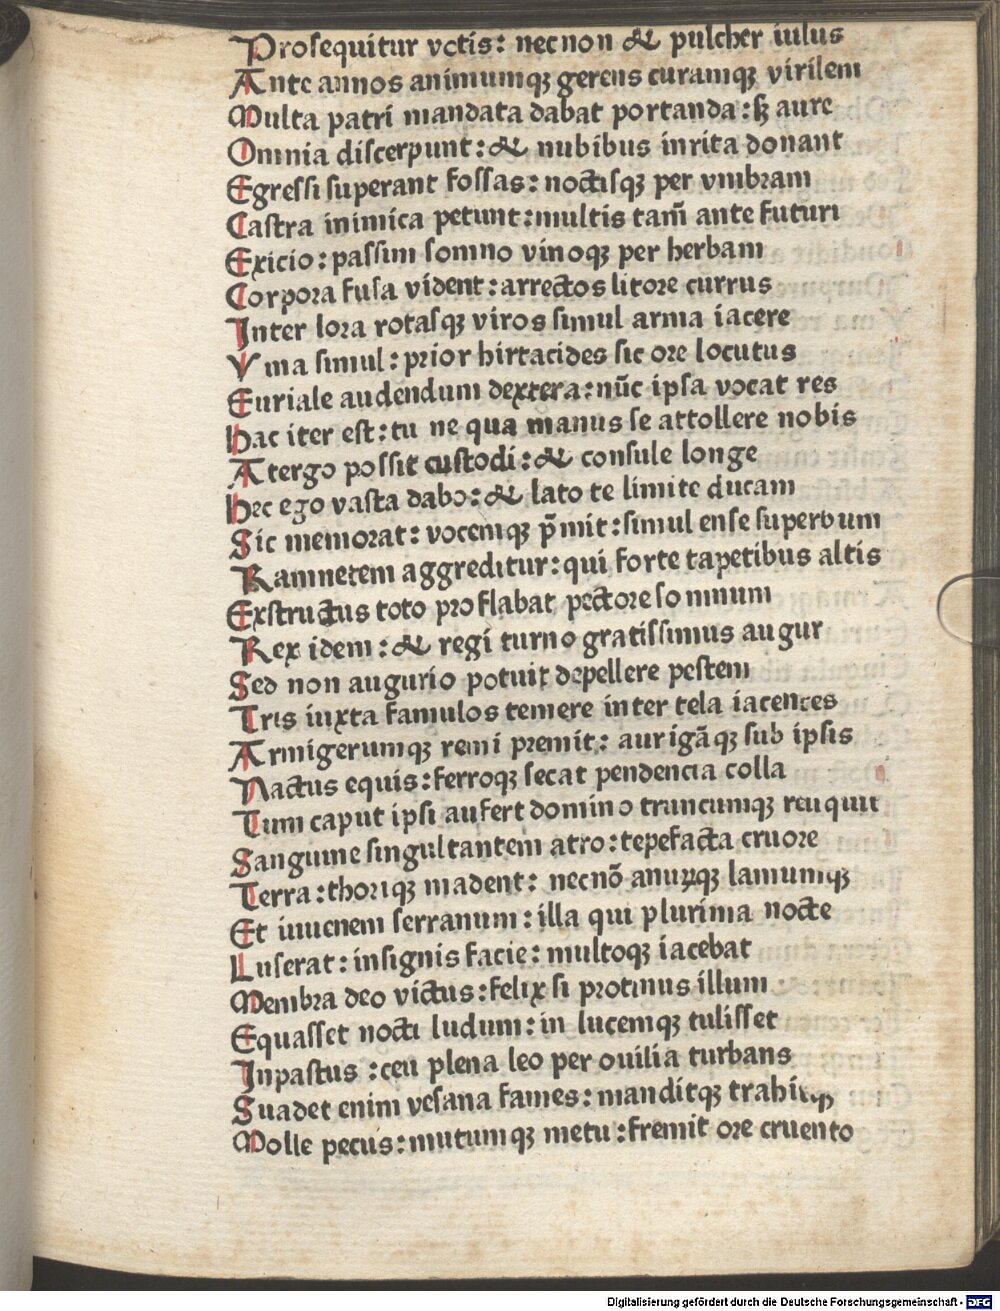 Prosequitur votis: nec non & pulcher iulus
Ante annos animumqꝫ gerens curamqꝫ virilem
Multa patri mandata dabat portanda: sꝫ aure
Omnia discerpunt: & nubibus inrita donant
Egressi superant fossas: noctisqꝫ per vmbram
Castra inimica petunt: multis tam̄ ante futuri
Exicio: passim somno vinoqꝫ per herbam
Corpora fusa vident: arrectos litore currus
Inter lora rotasqꝫ viros simul arma iacere
Vina simul: prior hirtacides sic ore locutus
Euriale audendum dextera: nūc ipsa vocat res
Hac iter est: tu ne qua manus se attollere nobis
A tergo possit custodi: & consule longe
Hec ego vasta dabo: & lato te limite ducam
Sic memorat: vocemqꝫ p̄mit: simul ense superbum
Ramnetem aggreditur: qui forte tapetibus altis
Exstructus toto proflabat pectore somnum
Rex idem: & regi turno gratissimus augur
Sed non augurio potuit depellere pestem
Tris iuxta famulos temere inter tela iacentes
Armigerumqꝫ remi premit: aurigāqꝫ sub ipsis
Nactus equis: ferroqꝫ secat pendencia colla
Tum caput ipsi aufert domino truncumqꝫ reliquit
Sanguine singultantem atro: tepefacta cruore
Terra: thoriqꝫ madent: necnō lamumqꝫ
Et iuuenem serranum: illa qui plurima nocte
Luserat: insignis facie: multoqꝫ iacebat
Membra deo victus: felix si protinus illum
Equasset nocti ludum: in lucemqꝫ tulisset
Inpastus: ceu plena leo per ouilia turbans
Suadet enim vesana fames: manditqꝫ
Molle pecus: mutumqꝫ metu: fremit ore cruento
Digitalisierung gefördert durch die Deutsche Forschungsgemeinschaft - DFG